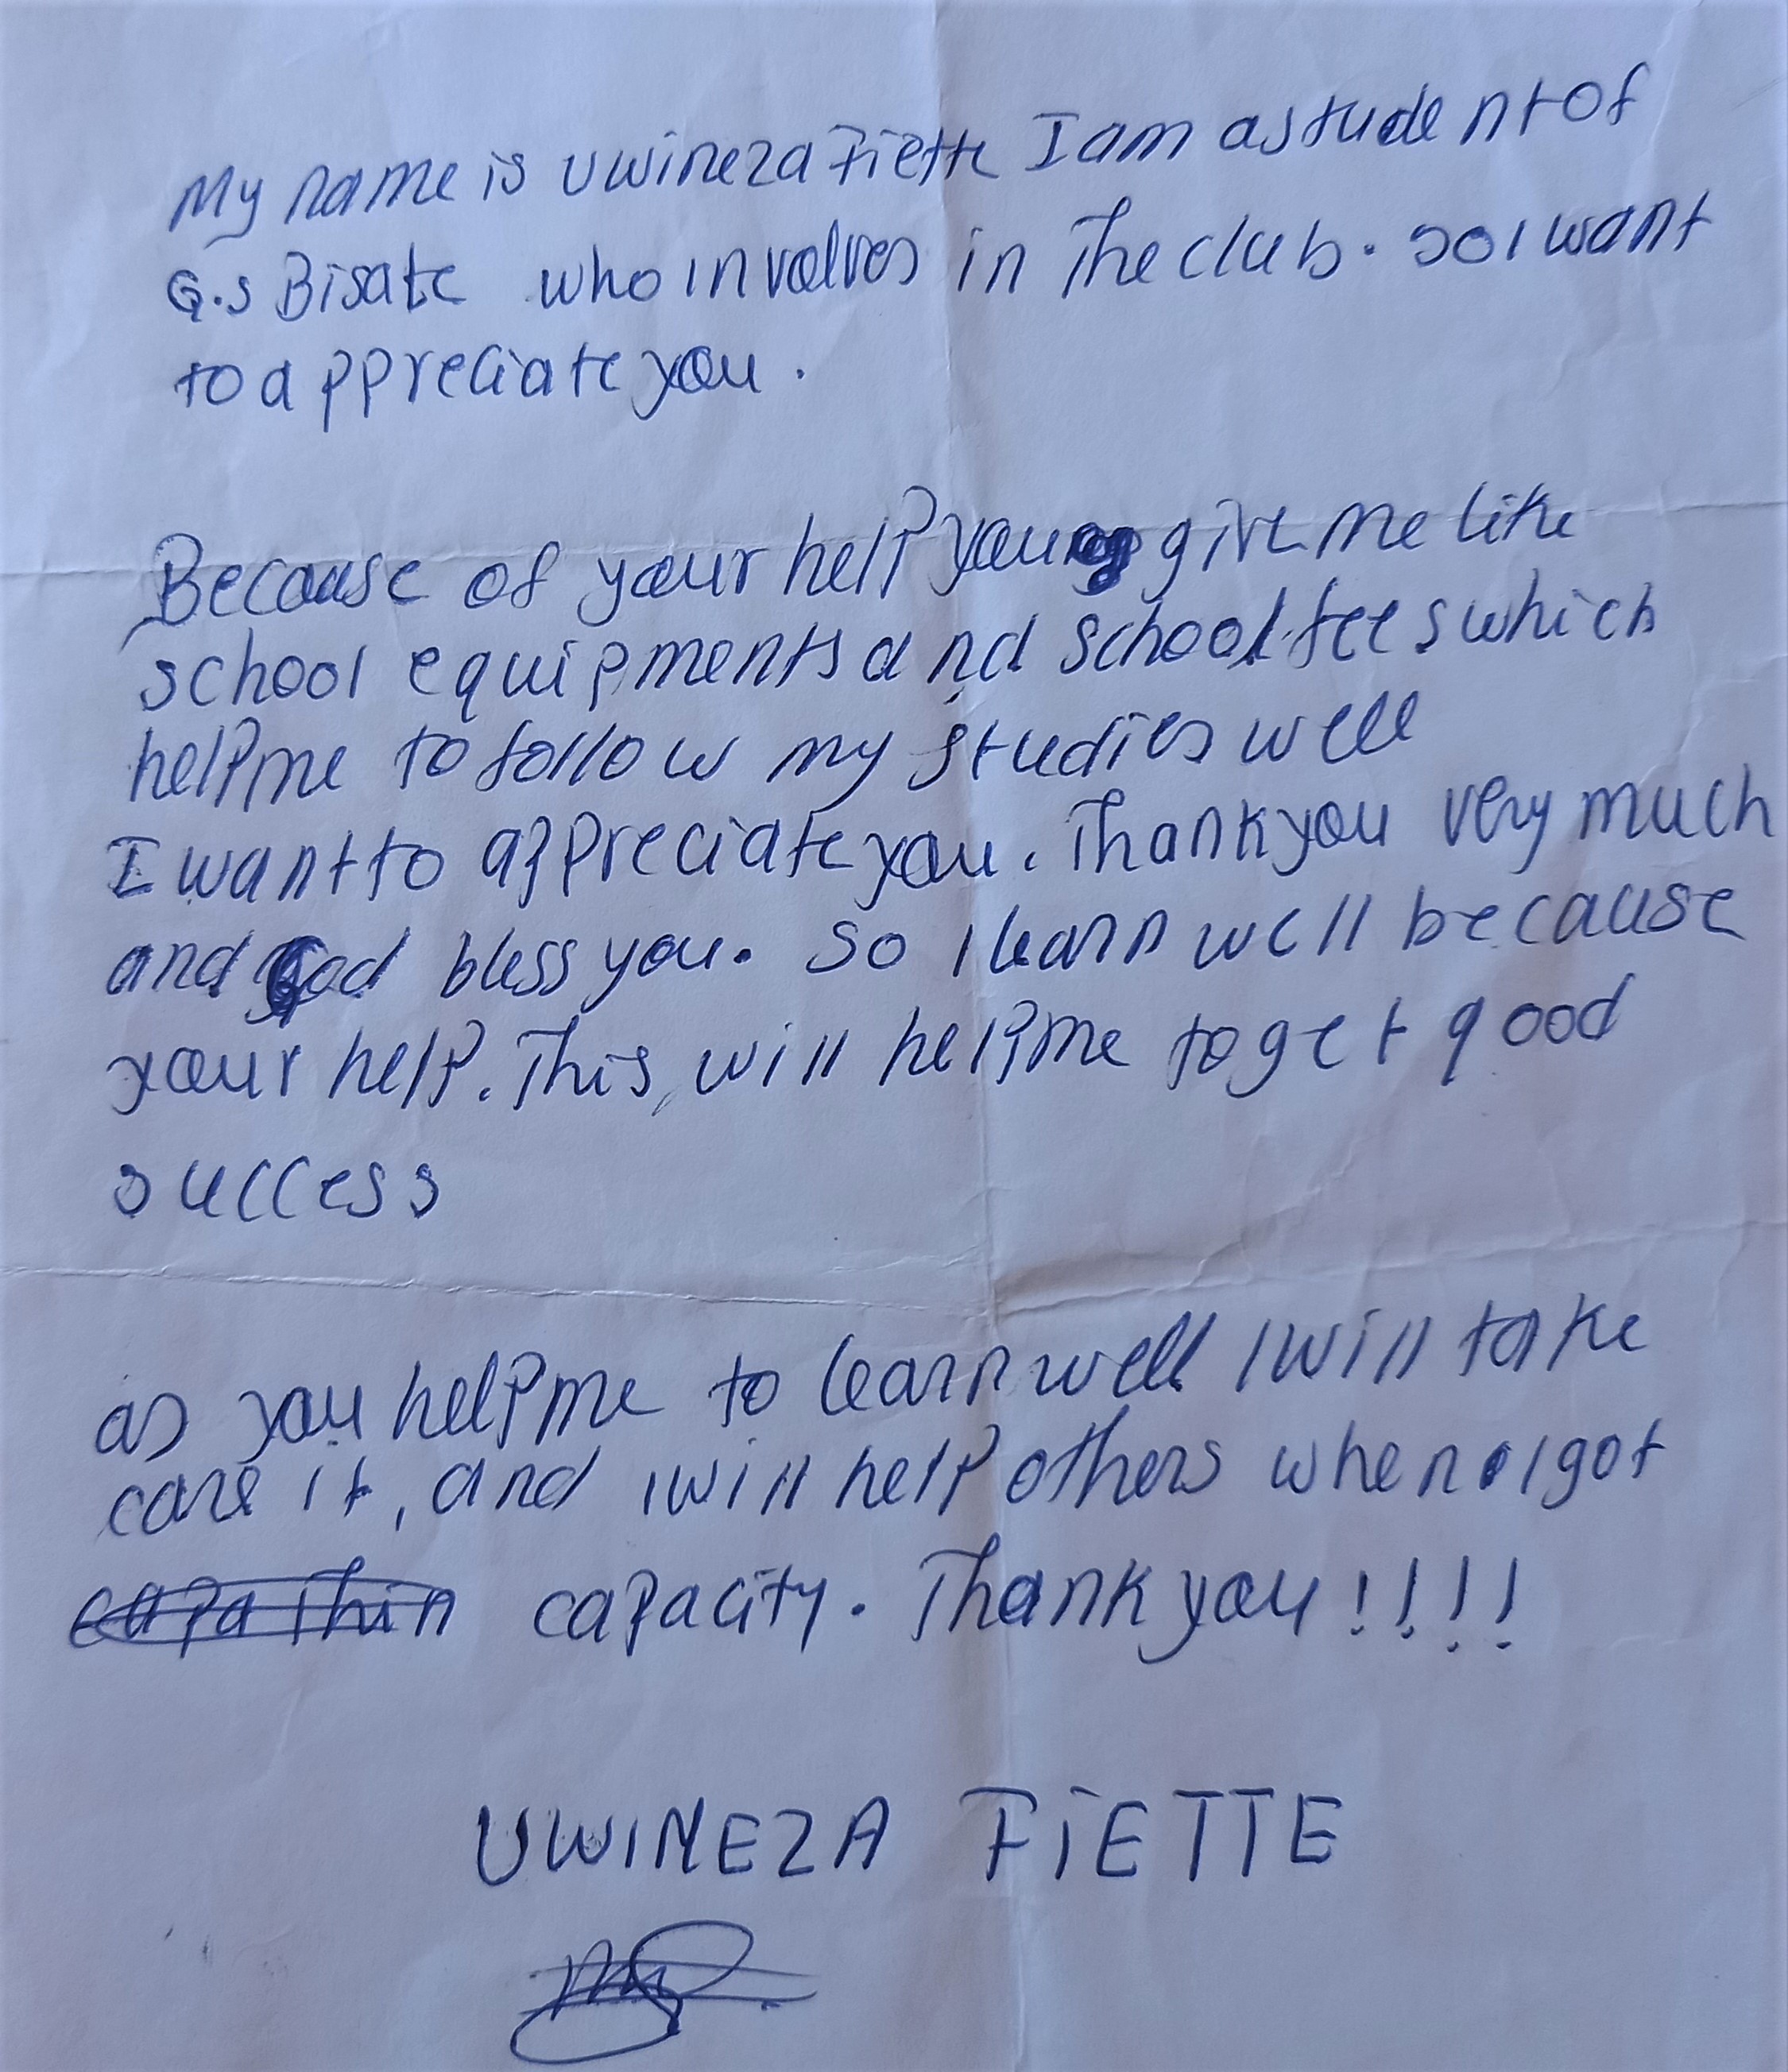 My name is Uwineza Fiette I am a student of
G.S Bisate who involves in The club. so I want
to appreciate you.
Because of your help you give me like
school equipments and school fees which
help me to follow my studies well
I want to appreciate you. Thank you very much
and God bless you. So I learn well because
your help. This, will help me to get good
success
as you help me to learn well I will take
care it, and I will help others when I got
capacity. Thank you!!!!
UWINEZA FIETTE